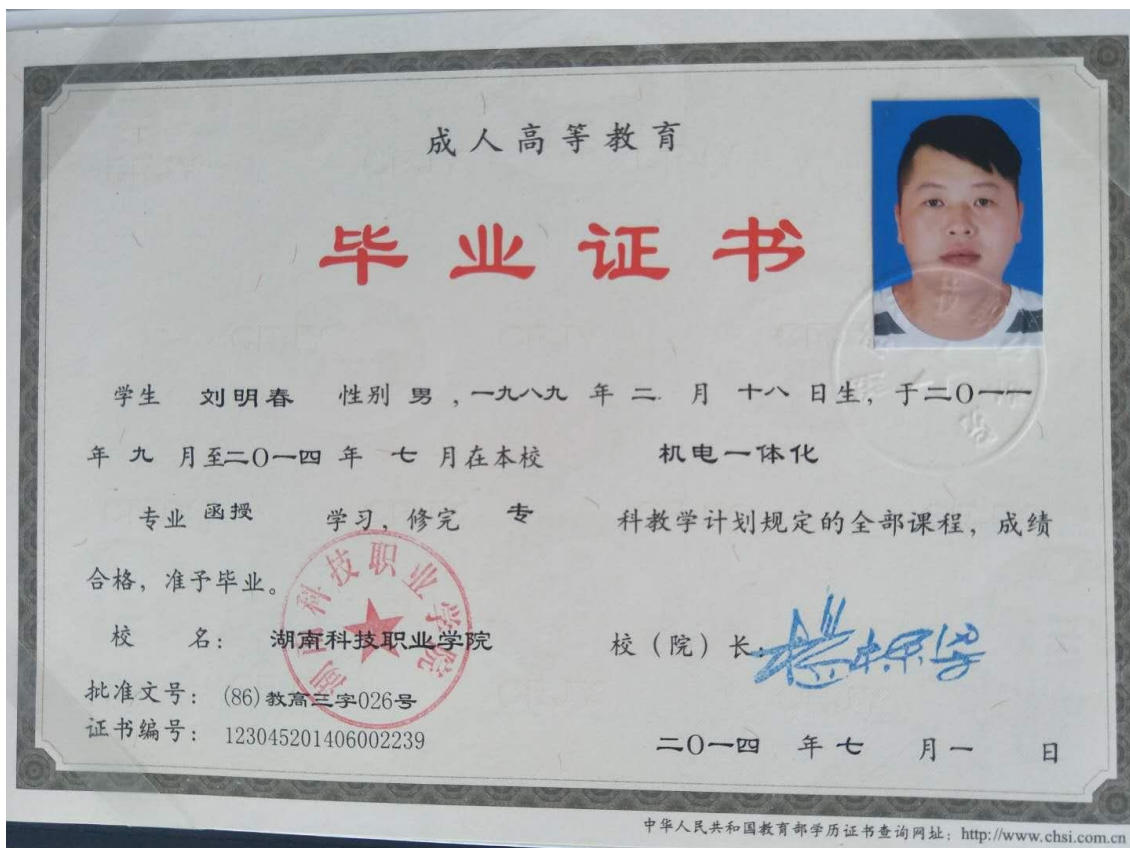 成人高等教育
毕业证书
学生 刘明春 性别 男 ,一九八九 年 二 月 十八 日生, 于二O一一
年 九 月至二O一四 年 七 月在本校 机电一体化
专业 函授 学习, 修完 专 科教学计划规定的全部课程, 成绩
合格, 准予毕业。
校 名: 湖南科技职业学院 校 (院) 长:
湖南科技职业学院
批准文号: (86)教高三字026号
证书编号: 123045201406002239
二O一四 年 七 月 一 日
中华人民共和国教育部学历证书查询网址: http://www.chsi.com.cn